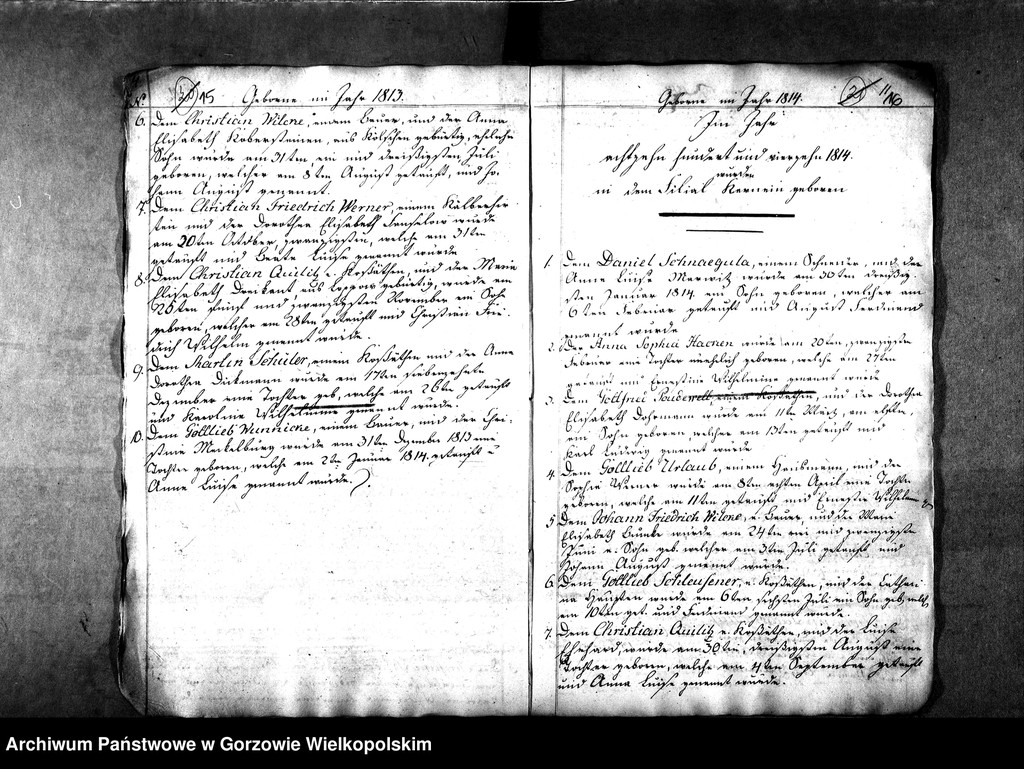 No.
15
Geborne im Jahr 1813.
6. Dem Christian Wilcke, einem Bauer, und der Anna
Elisabeth Kobersteinen, aus Költschen gebürtig, eheliche
Sohn wurde am 31ten ein und dreißigsten Juli
geboren, welcher am 8ten August getauft, und Jo-
hann August genennt.
7. Dem Christian Friedrich Werner, einem
und der Dorothea Elisabeth wurde
am 20ten October, zwanzigsten, welche am 31ten
getauft und Beate Luise genannt wurde
8. Dem Christian Quilitz e. Koßäthen, und der Marie
Elisabeth aus gebürtig, wurde am
25ten fünf und zwanzigsten November ein Sohn
geboren, welcher am 28ten getauft und Christian Frie-
drich Wilhelm genannt wurde.
9. Dem Martin Schüler, einem Koßäthen und der Anna
Dorothea Dickmann wurde am 17ten siebenzehnten
Dezember eine Tochter geb. welche am 26ten getauft
und Karoline Wilhelmine genannt wurde.
10. Dem Gottlieb Wunnicke, einem Bauer, und der Chri-
stine Mecklburg wurde am 31ten Dezember 1813 eine
Tochter geboren, welche am 2ten Januar 1814. getauft u
Anna Luise genannt wurde.
Geborne im Jahr 1814.
Im Jahr
achtzehn hundert und vierzehn 1814.
wurden
in dem Filial Kernein geboren
1. Dem Daniel Schnaegula, einem Schneider, und der
Anna Luise wurde am 30ten dreißig-
sten Januar 1814. ein Sohn geboren, welcher am
6ten Februar getauft und August Ferdinand
genannt wurde
2. Der Anna Sophia Hacnen wurde am 20ten, zwanzigsten
Februar eine Tochter unehelich geboren, welche am 27ten
getauft und Ernestine Wilhelmine genannt wurde
3. Dem Gottfried einem Koßäthen, und der Dorothea
Elisabeth Dohrmann wurde am 11ten März, am elften,
ein Sohn geboren, welcher am 13ten getauft und
Karl Ludwig genannt wurde
4. Dem Gottlieb Urlaub, einem Hausmann, und der
Sophie wurde am 8ten achten April eine Tochter
geboren, welche am 11ten getauft und Ernestine Wilhelm
5. Dem Johann Friedrich Wilcke, e. Bauer, und der Marie
Elisabeth wurde am 24ten vier und zwanzigsten
Juni e. Sohn geb. welcher am 3ten Juli getauft und
Johann August genannt wurde.
6. Dem Gottlieb Schleusener, e. Koßäthen, und der Cathari-
na wurde am 6ten sechsten Juli ein Sohn geb. welch.
am 10ten get. und Ferdinand genannt wurde.
7. Dem Christian Quilitz e. Koßäthen, und der Luise
Ehrhard, wurde am 30ten, dreißigsten August eine
Tochter geboren, welche am 4ten September getauft
und Anna Luise genannt wurde.
Archiwum Państwowe w Gorzowie Wielkopolskim